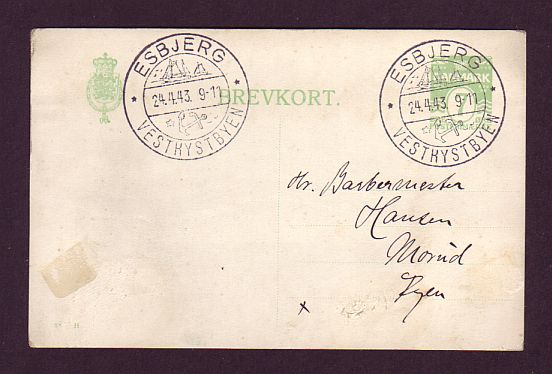 ESBJERG
24.4.43. 9-11
VESTKYSTBYEN
BREVKORT.
ESBJERG
24.4.43. 9-11
VESTKYSTBYEN
DANMARK
Hr. Barbermester
Hansen
Morud
Fyen
x